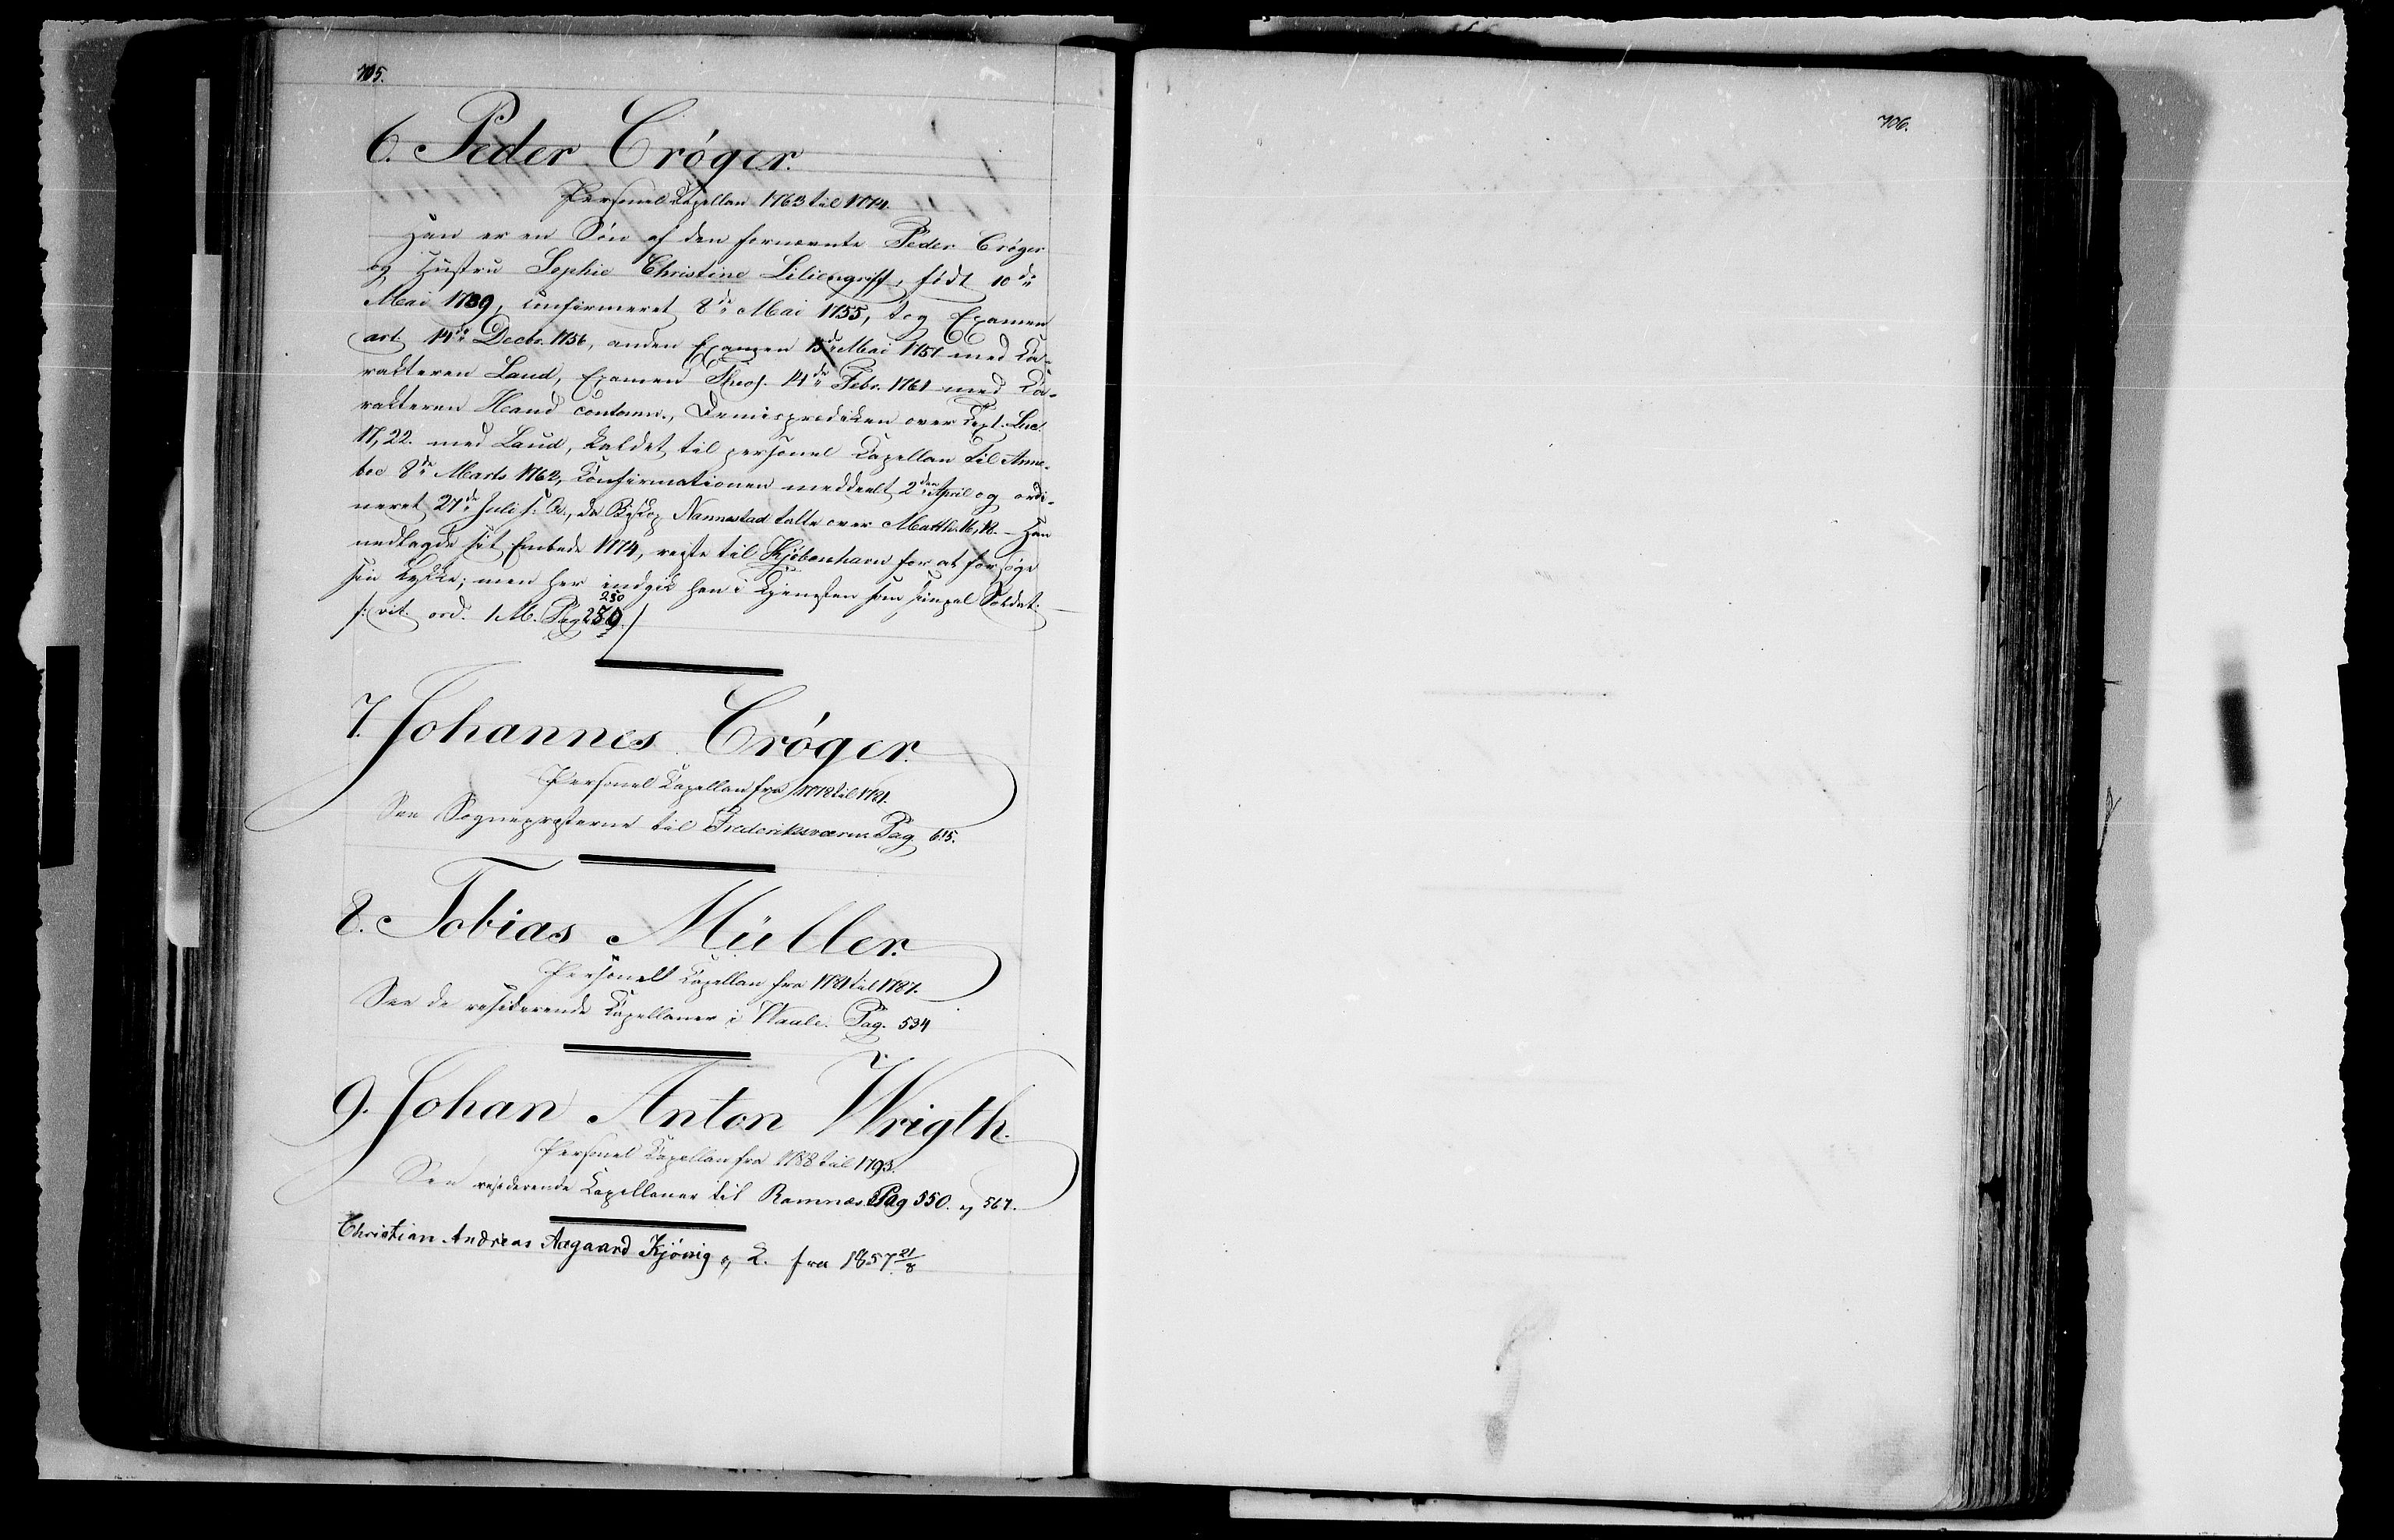 705.
6. Peder Crøger.
Personel Kapellan 1763 til 1774.
Han er en Søn af den fornævnte Peder Crøger
og Hustru Sophie Christine Liliengriff, født 10de
Mai 1739, confirmeret 8de Mai 1755, tog Examen
art. 14de Decbr. 1756, anden Examen 13de Mai 1757 med Ca-
rakteren Laud, Examen Theol. 14de Febr. 1761 med Ca-
rakteren Haud contemn., Demisprædiken over Text. Luc.
17,22. med Laud, kaldet til personel Capellan til Anne-
boe 8de Marts 1762, Confirmationen meddeelt 2den April og ordi-
neret 27de Juli s. A., da Biskop Nannestad talte over Matth. 16,18. – Han
nedlagde sit Embede 1774, reiste til Kjøbenhavn for at forsøge
sin Lykke; men her indgik han i Tjenesten som simpel Soldat. –
280
s: vit. ord. 1 M. Pag 289.
7. Johannes Crøger.
Personel Kapellan fra 1778 til 1781.
See Sognepræsterne til Frederiksværn Pag. 615.
8. Tobias Müller.
Personel Kapellan fra 1781 til 1787.
See de residerende Kapellaner i Vaale. Pag. 534
9. Johan Anton Wrigth.
Personel Kapellan fra 1788 til 1793.
See residerende Kapellaner til Ramnes Pag 550. og 567.
Christian Andreas Aagaard Kjønig p. K. fra 1857 21/8
706.